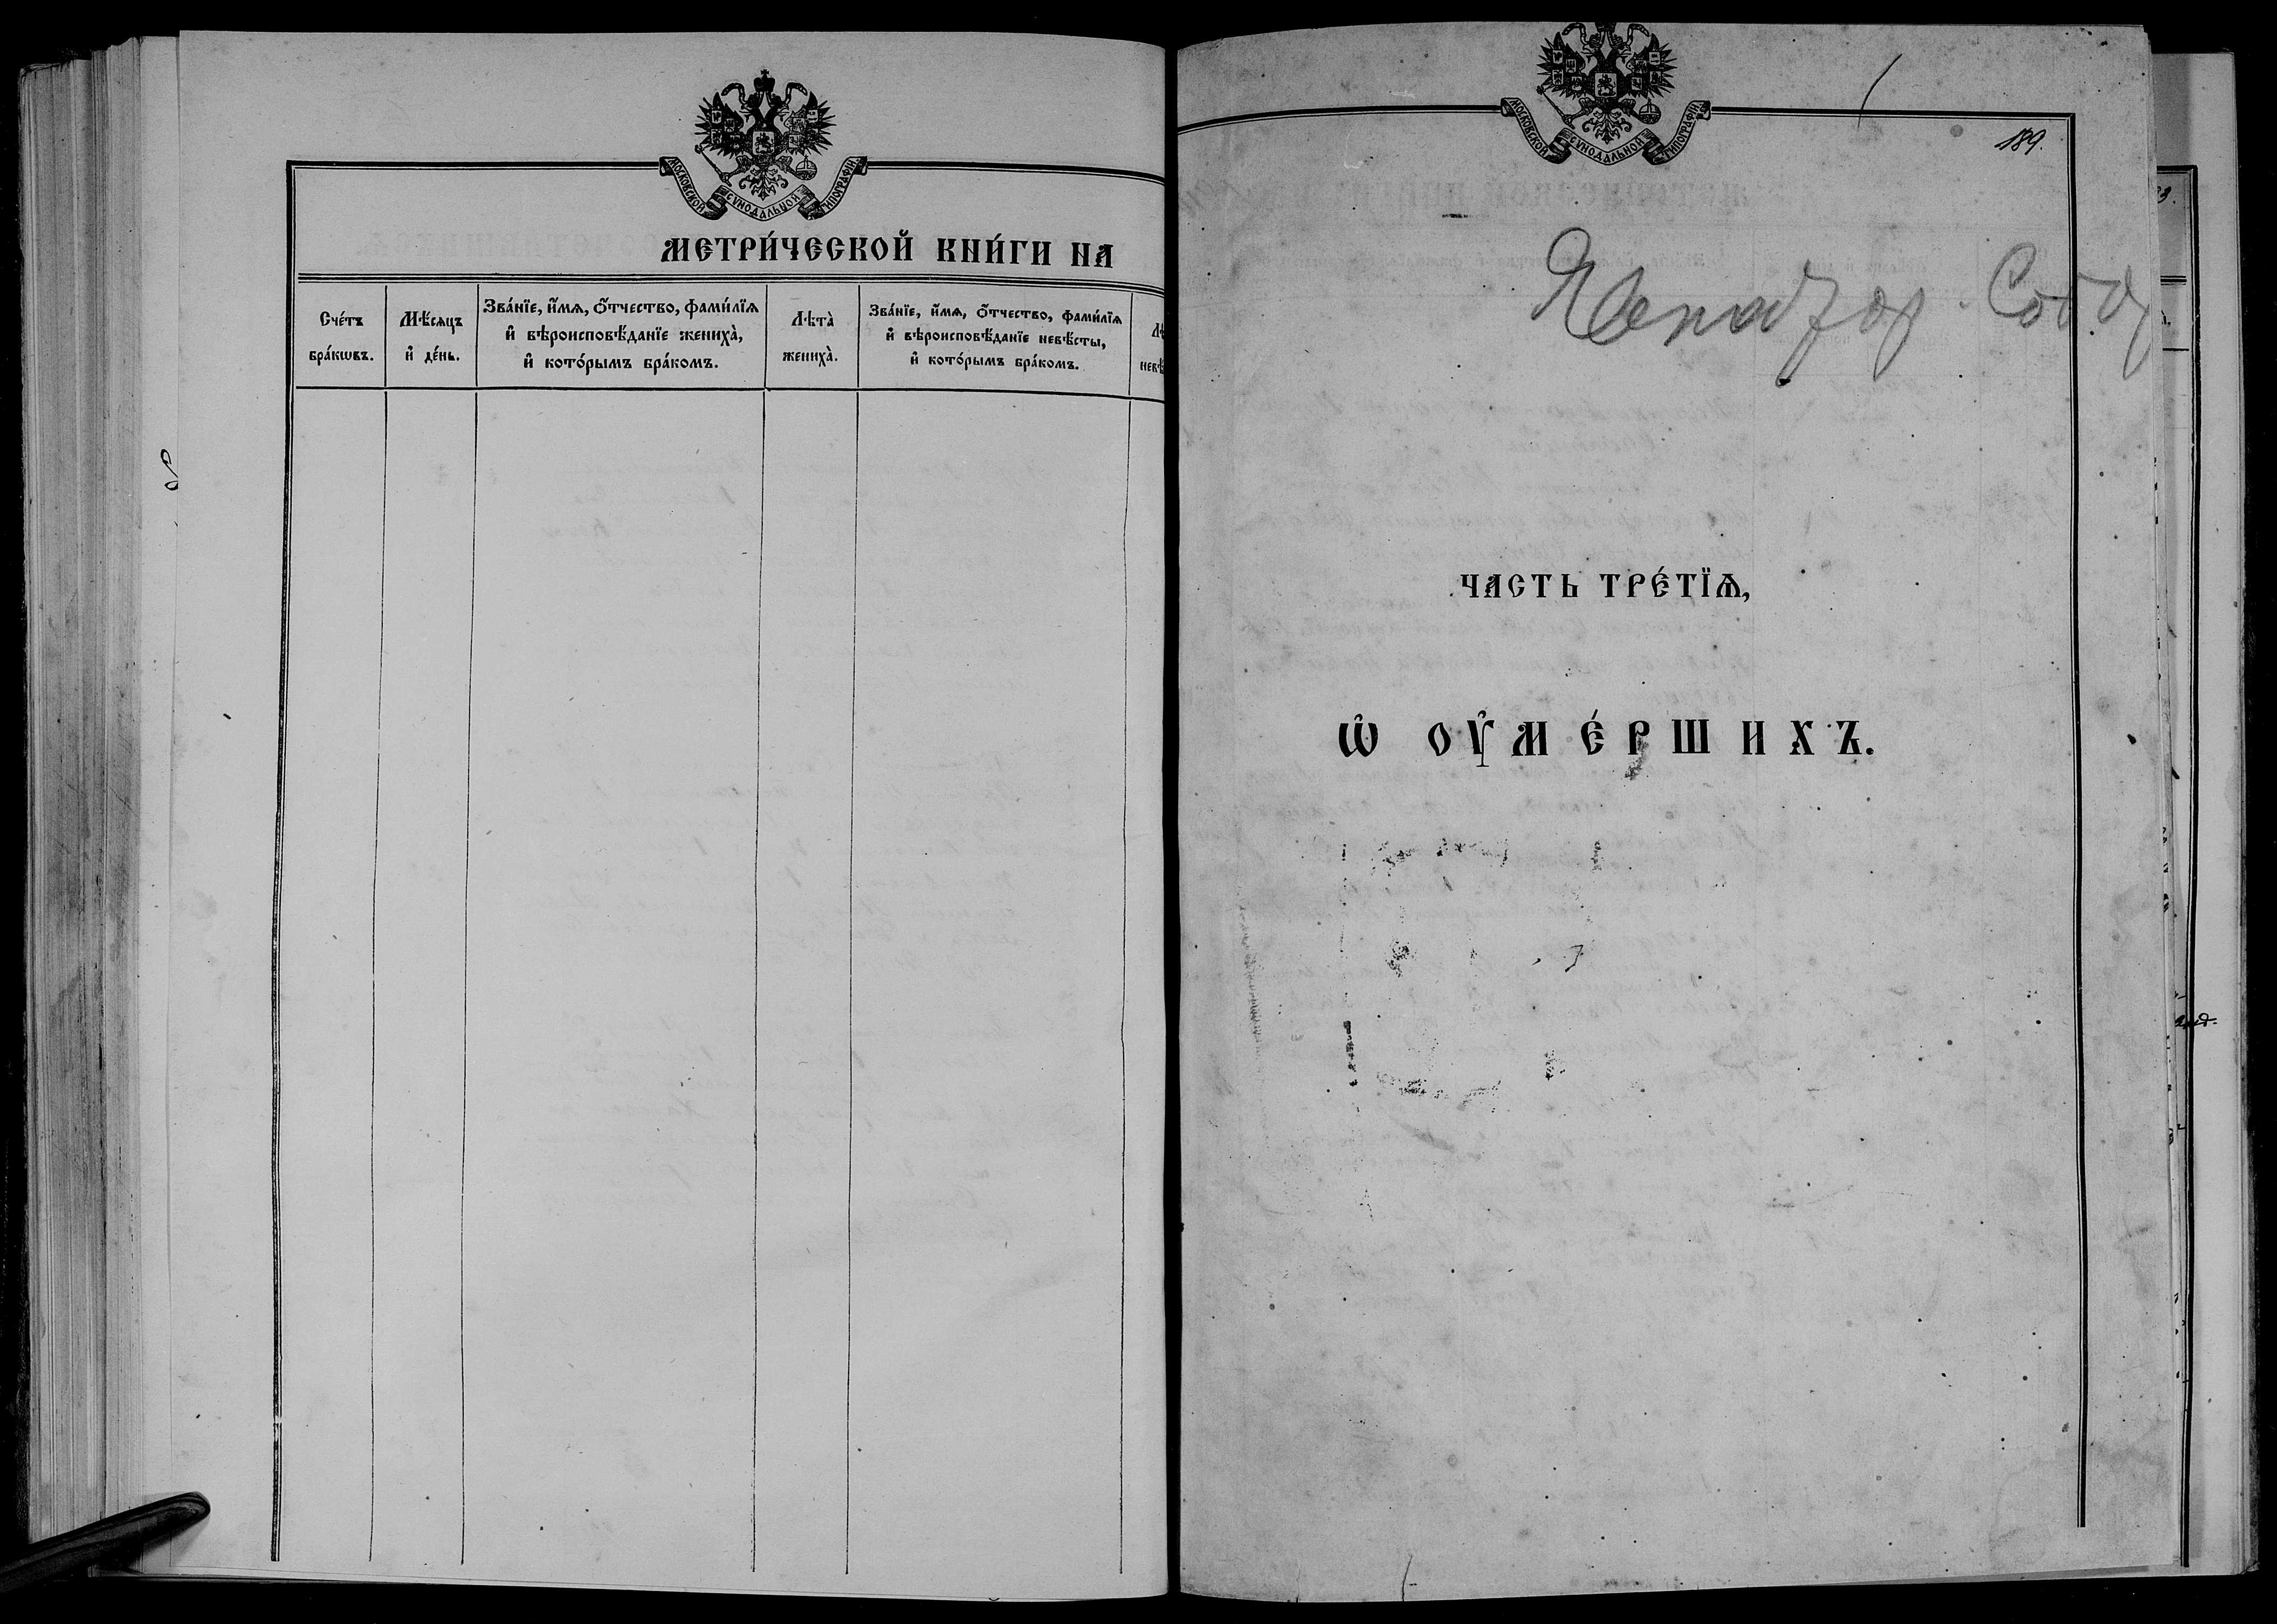 МОСКОВСКОЙ СѴНОДАЛЬНОЙ ТИПОГРАФІИ
МЕТРИ́ЧЕСКОЙ КНИ́ГИ НА
Сче́тъ бра́кѡвъ.
Мѣ́сяцъ и҆ де́нь.
Зва́нїе, и҆́мѧ, ѻ҆́тчество, фами́лїѧ
и҆ вѣроисповѣ́данїе жениха̀,
и҆ кото́рымъ бра́комъ.
Лѣта̀ жениха̀.
Зва́нїе, и҆́мѧ, ѻ҆́тчество, фами́лїѧ
и҆ вѣроисповѣ́данїе невѣ́сты,
и҆ кото́рымъ бра́комъ.
МОСКОВСКОЙ СѴНОДАЛЬНОЙ ТИПОГРАФІИ
189.
ЧАСТЬ ТРЕ́ТЇѦ,
Ѡ҆ ОУ҆МЕ́РШИХЪ.